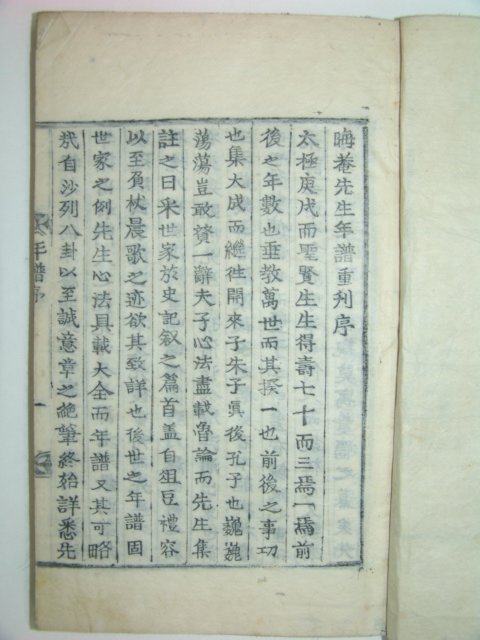 晦菴先生年譜重刊序
太極庚戌而聖賢生生得壽七十而三焉一焉前
後之年數也垂敎萬世而其揆一也前後之事功
也集大成而繼往開來子朱子眞後孔子也巍巍
蕩蕩豈敢贊一辭夫子心法盡載魯論而先生集
註之日采世家於史記叙之篇首盖自俎豆禮容
以至負杖晨歌之迹欲其致詳也後世之年譜固
世家之例先生心法具載大全而年譜又其可略
㢤自沙列八卦以至誠意章之絶筆終始詳悉先
年譜序
一